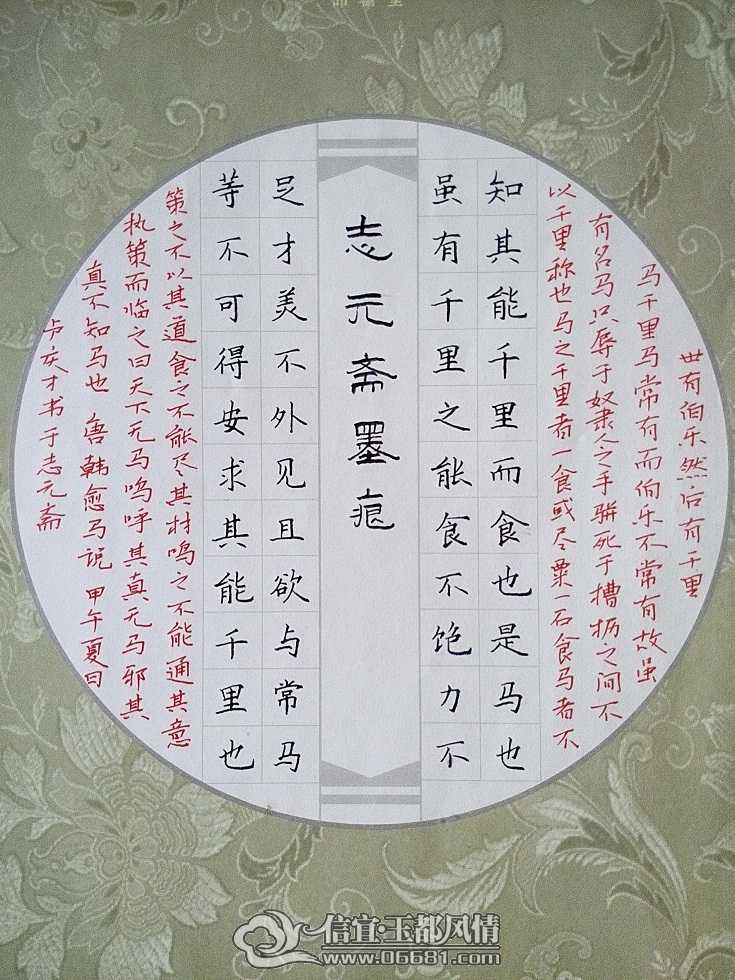 世有伯乐然后有千里
马千里马常有而伯乐不常有故虽
有名马只辱于奴隶人之手骈死于槽枥之间不
以千里称也马之千里者一食或尽粟一石食马者不
知其能千里而食也是马也
虽有千里之能食不饱力不
志元斋墨痕
足才美不外见且欲与常马
等不可得安求其能千里也
策之不以其道食之不能尽其材鸣之不能通其意
执策而临之曰天下无马呜呼其真无马邪其
真不知马也 唐韩愈马说 甲午夏日
卢庆才书于志元斋
信宜·玉都风情
www.06681.com